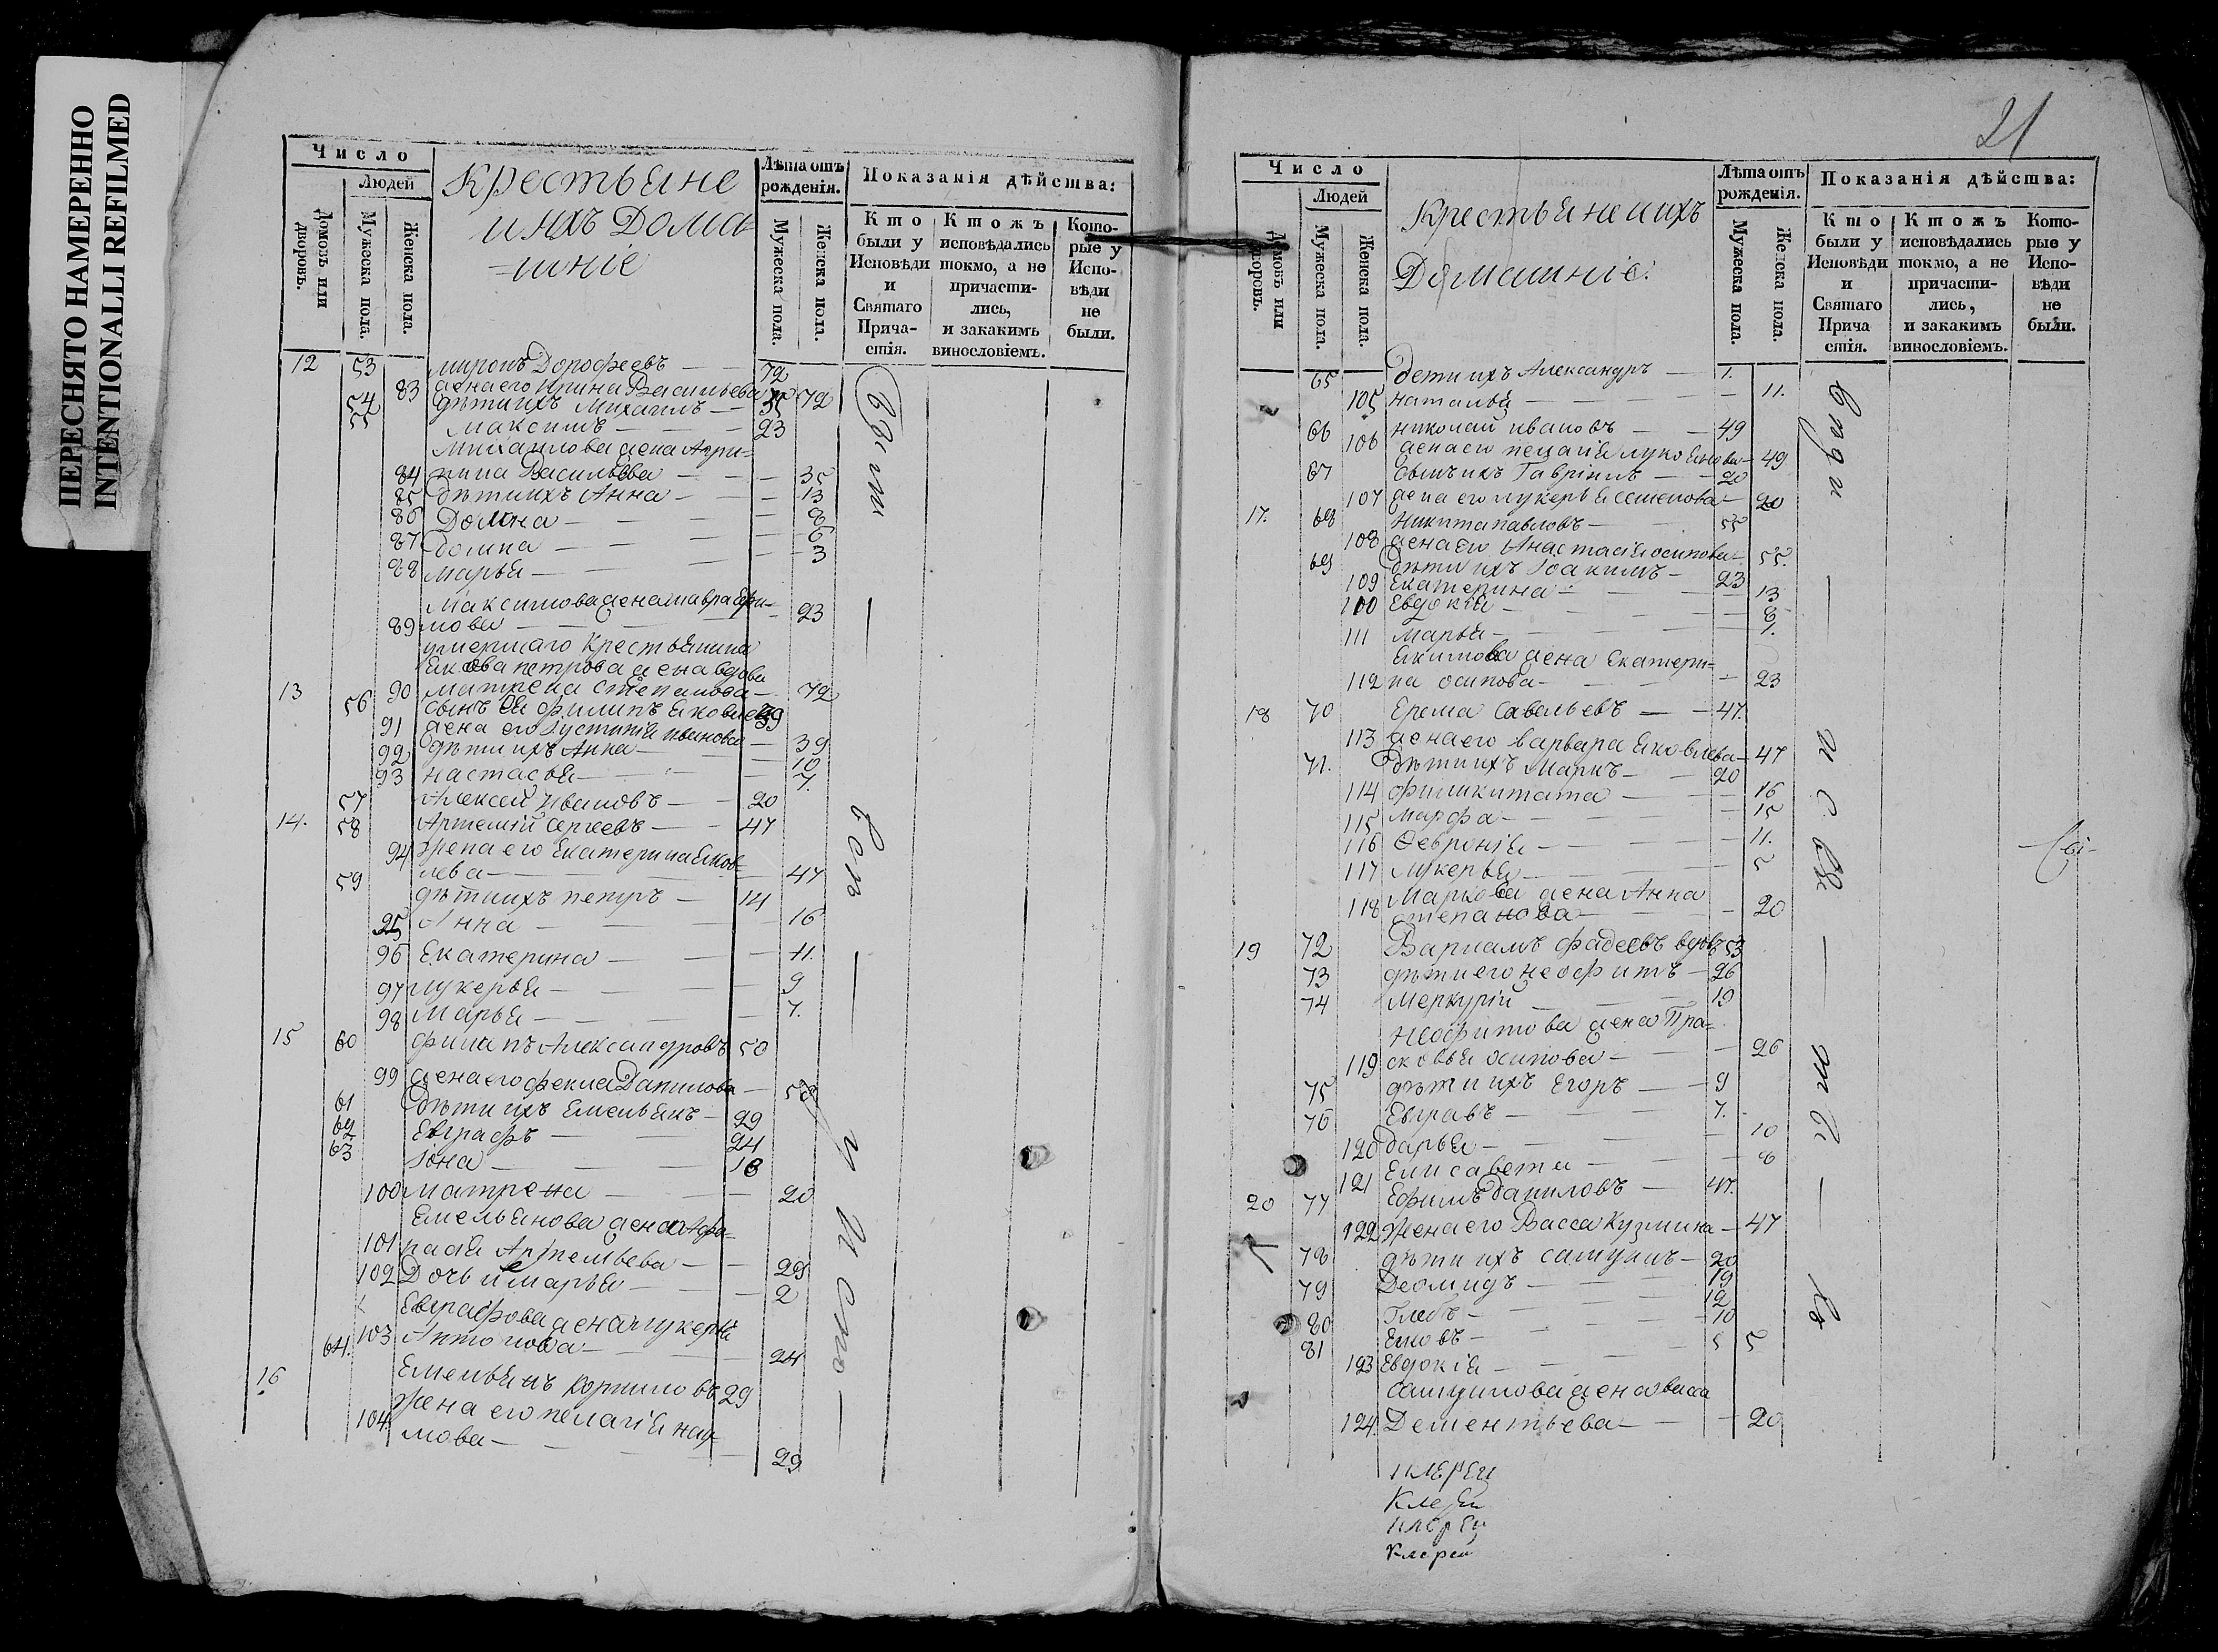 ПЕРЕСНЯТО НАМЕРЕННО
INTENTIONALLI REFILMED
Число
Людей
Домовъ или дворовъ.
Мужеска пола.
Женска пола.
Крестьяне
и ихъ Дома
=шніе
Лѣта отъ рожденія.
Мужеска пола.
Женска пола.
Показанія дѣйства:
Кто были у Исповѣди и Святаго Прича-стія.
Ктожъ исповѣдались токмо, а не причасти-лись, и закакимъ винословіемъ.
Кото-рые у Испо-вѣди не были.
12 53 миронъ Дорофеевъ — 72
83 жена его Ирина Васильева 72
54 дѣти ихъ Михаилъ — 35
55 Максимъ — 23
Михаилова жена Агри=
84 пина Васильева — 35
85 дѣти ихъ Анна — 13
86 Домна — 8
87 домна — 6
88 марья — 3
Максимова жена мавра Ефи=
89 мова — 23
умершаго Крестьянина
Якова петрова жена вдова
13 90 матрена степанова — 72
56 сынъ ея филипъ яковлевъ 39
91 жена его Іустинія иванова — 39
92 дѣти ихъ Анна — 10
93 настасья — 7.
57 Алексей ивановъ — 20
14. 58 Артемій сергеевъ — 47
94 жена его Екатерина яков=
лева — 47
59 дѣти ихъ петръ — 14
95 Анна — 16
96 Екатерина — 11.
97 лукерья — 9
98 Марья — 7.
15 60 филипъ Александровъ 50
99 жена его фекла Данилова — 50
61 дѣти ихъ Емельянъ — 29
62 Евграфъ — 24
63 Іона — 18
100 матрена — 20
Емельянова жена Афа=
101 насія Артемьева — 29
102 Дочь и марья — 2
Евграфова жена лукерья
103 Антонова — 24
16 64. Емельянъ Корниловъ 29
104. Жена его пелагія нау=
мова — 29
21
Число
Людей
Домовъ или дворовъ.
Мужеска пола.
Женска пола.
Крестьяне и ихъ
Домашніе.
Лѣта отъ рожденія.
Мужеска пола.
Женска пола.
Показанія дѣйства:
Кто были у Исповѣди и Святаго Прича стія.
Ктожъ исповѣдались токмо, а не причасти-лись, и закакимъ винословіемъ.
Кото-рые у Испо-вѣди не были.
65 дети ихъ Александръ — 1.
105 наталья — 11.
66 николай ивановъ — 49
106 жена его пелагія лукоянова — 49
67 сынъ ихъ Гавріилъ — 20
107 жена его лукерья семенова — 20
17. 68 Никита павловъ — 55
108 жена его Анастасія осипова — 55.
69 дѣти ихъ Іоакимъ — 23
109 Екатерина — 13
110 Евдокія — 8
111 марья — 1.
Якимова жена Екатери=
112 на осипова — 23
18 70 Ерема савельевъ — 47.
113 жена его варвара яковлева — 47
71. дѣти ихъ Маркъ — 20
114 филикитата — 16
115 марфа — 15
116 Ѳевронія — 11.
117 лукерья — 5
Маркова жена Анна
118 степанова — 20
19 72 Варламъ фадеевъ вдовъ 53
73 дѣти его неофитъ — 26
74 меркурій — 19
неофитова жена Пра=
119 сковья осипова — 26
75 дѣти ихъ Егоръ — 9
76 Евгравъ — 7.
120 дарья — 10
121 Елисавета — 8
20 77 Ефимъ даниловъ — 47.
122 Жена его Васса Кузмина — 47
78 дѣти ихъ самуилъ — 20
79 Деомидъ — 19
80 Глебъ — 12
81 Яковъ — 10
123 Евдокія — 5 5
самуилова жена васса
124. Дементьева — 20